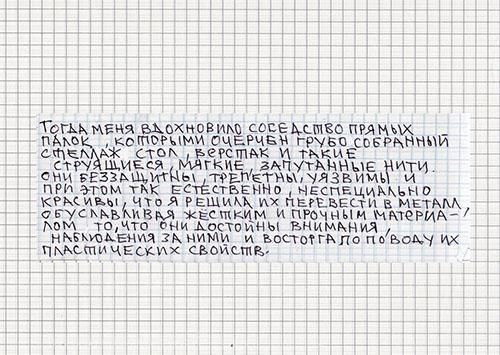 ТОГДА МЕНЯ ВДОХНОВИЛО СОСЕДСТВО ПРЯМЫХ
ПАЛОК, КОТОРЫМИ ОЧЕРЧЕН ГРУБО СОБРАННЫЙ
СТЕЛЛАЖ СТОЛ, ВЕРСТАК И ТАКИЕ
СТРУЯЩИЕСЯ, МЯГКИЕ, ЗАПУТАННЫЕ НИТИ.
ОНИ БЕЗЗАЩИТНЫ, ТРЕПЕТНЫ, УЯЗВИМЫ И
ПРИ ЭТОМ ТАК ЕСТЕСТВЕННО, НЕСПЕЦИАЛЬНО
КРАСИВЫ, ЧТО Я РЕШИЛА ИХ ПЕРЕВЕСТИ В МЕТАЛЛ,
ОБУСЛАВЛИВАЯ ЖЁСТКИМ И ПРОЧНЫМ МАТЕРИА-
ЛОМ ТО, ЧТО ОНИ ДОСТОЙНЫ ВНИМАНИЯ,
НАБЛЮДЕНИЯ ЗА НИМИ И ВОСТОРГА ПО ПОВОДУ ИХ
ПЛАСТИЧЕСКИХ СВОЙСТВ.